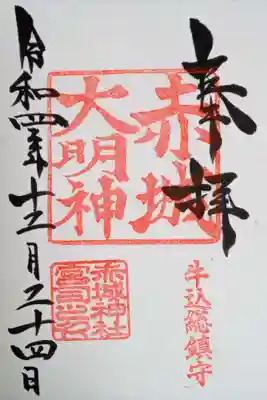 奉拝
赤城
大明神
牛込総鎮守
赤城神社
宮司之印
令和四年十二月二十四日